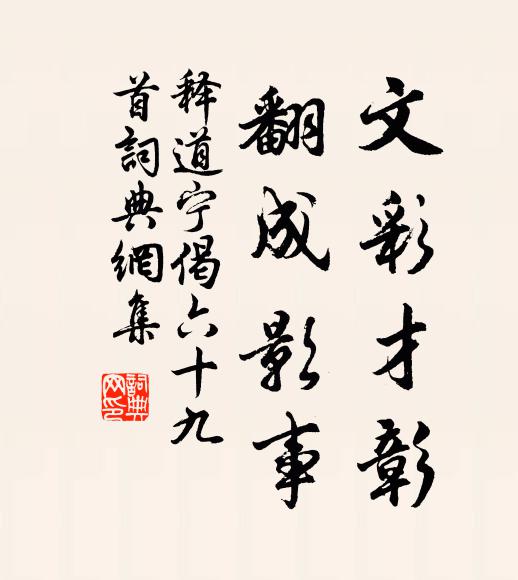 文彩才彰
翻成影事
释道宁偈六十九
首詞典網集
詞典
网印